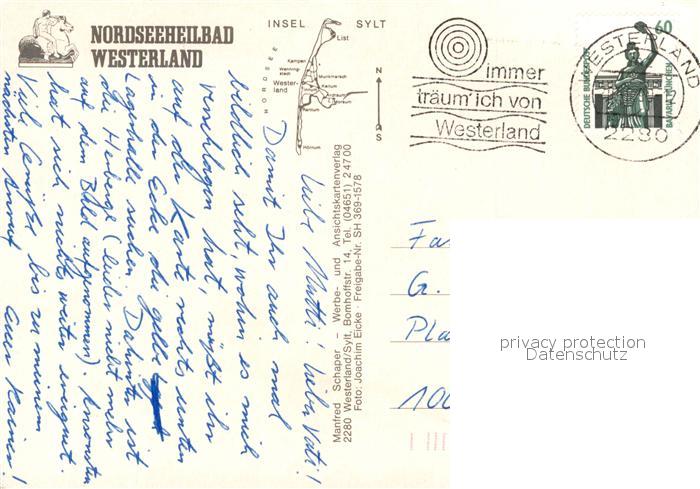 NORDSEEHEILBAD
WESTERLAND
INSEL SYLT
NORDSEE
List
Kampen
Wenning-
stedt
Wester-
land
Munkmarsch
Keitum
Morsum
Hörnum
N
S
immer
träum' ich von
Westerland
WESTERLAND
2280
60
DEUTSCHE BUNDESPOST
BAVARIA MÜNCHEN
Manfred Schaper - Werbe- und Ansichtskartenverlag
2280 Westerland/Sylt, Bomhoffstr. 14, Tel. (04651) 2 47 00
Foto: Joachim Eicke · Freigabe-Nr. SH 369-1578
Liebe Mutti! Lieber Vati!
Damit Ihr auch mal
bildlich seht, wohin es mich
verschlagen hat, müßt ihr
auf der Karte rechts unten
in der Ecke die gelbe
Lagerhalle suchen. Dahinter ist
die Herberge (leider nicht mehr
auf dem Bild aufgenommen) Ansonsten
hat sich nichts weiter ereignet.
Viele Grüße bis zu meinem
nächsten Anruf Euer Rainer!
Fa
G.
Pla
100
privacy protection
Datenschutz